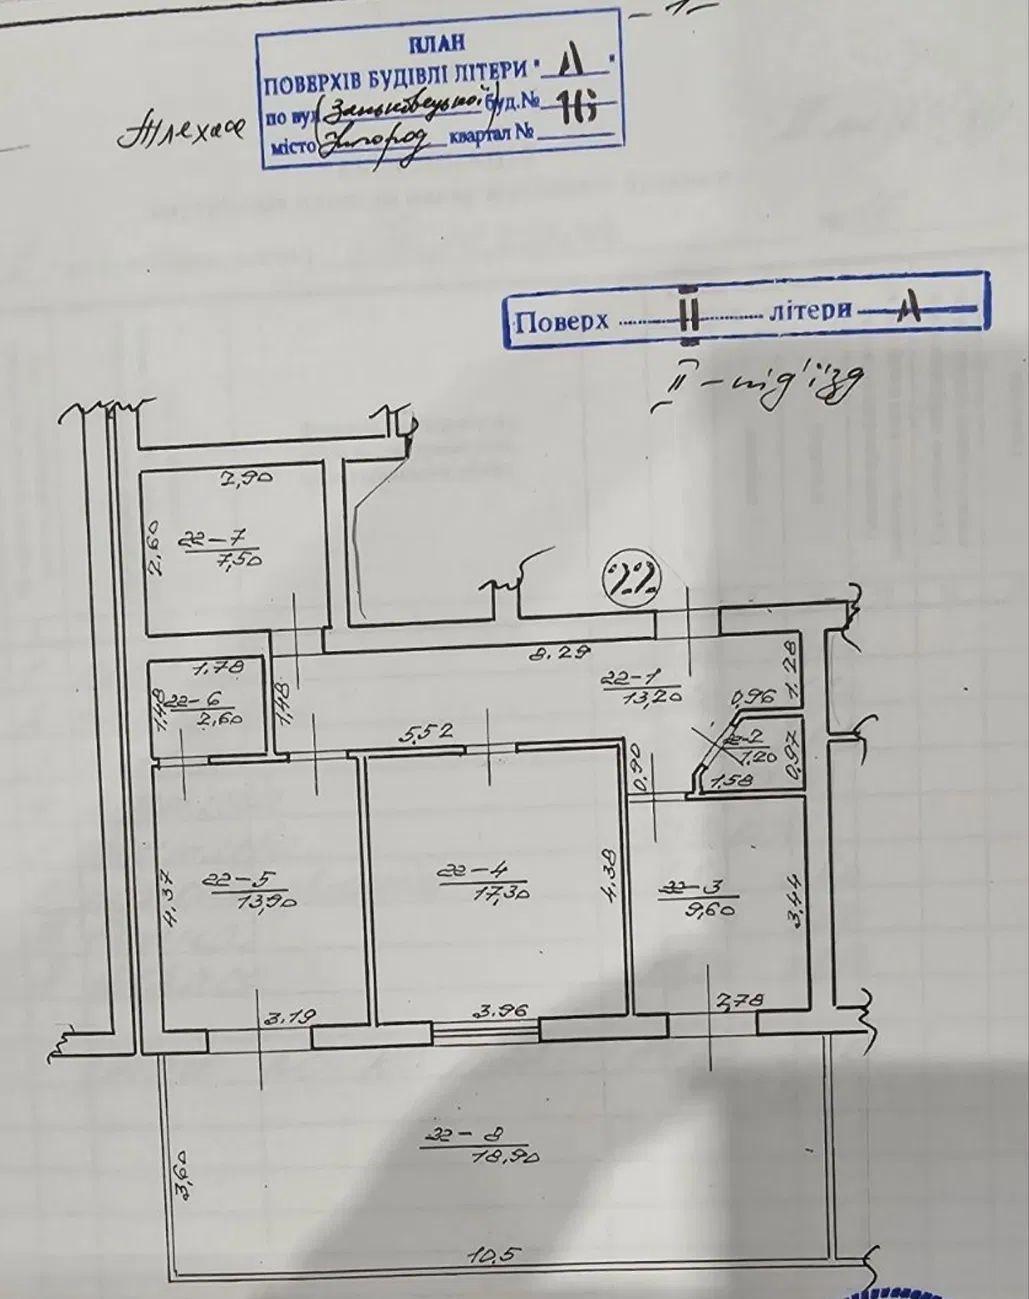 - 1 -
ПЛАН
ПОВЕРХІВ БУДІВЛІ ЛІТЕРИ "А"
по вул. Заньковецької буд. № 16
місто Ужгород квартал №
Поверх II літери А
II - під'їзд
2,90
2,60
22-7
7,50
22
8.29
1,78
1,48
22-6
2,60
1,48
22-1
13,20
1,28
0,96
5,52
0,90
22-2
1,20
0,97
1,58
4,37
22-5
13,90
22-4
17,30
4,38
22-3
9,60
3,44
3,19
3,96
2,78
22-8
18,90
3,60
10,5